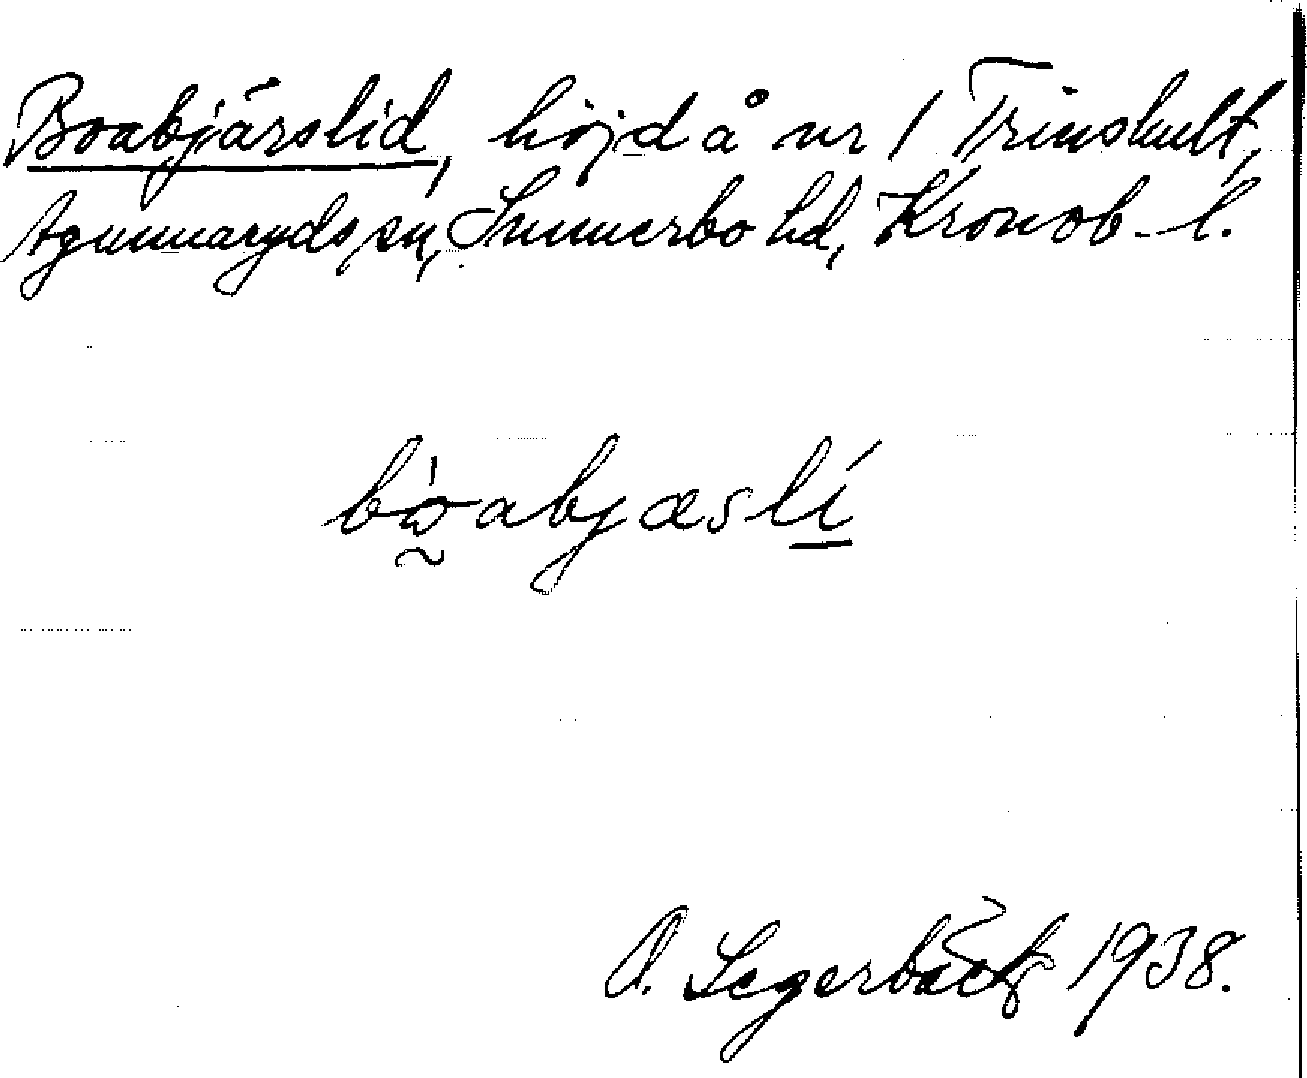 Boabjärslid, höjd å nr 1 Trinskult,
Agunnaryds sn, Sunnerbo hd, Kronob. l.
bòabjæslí
O. Segerbäck 1938.